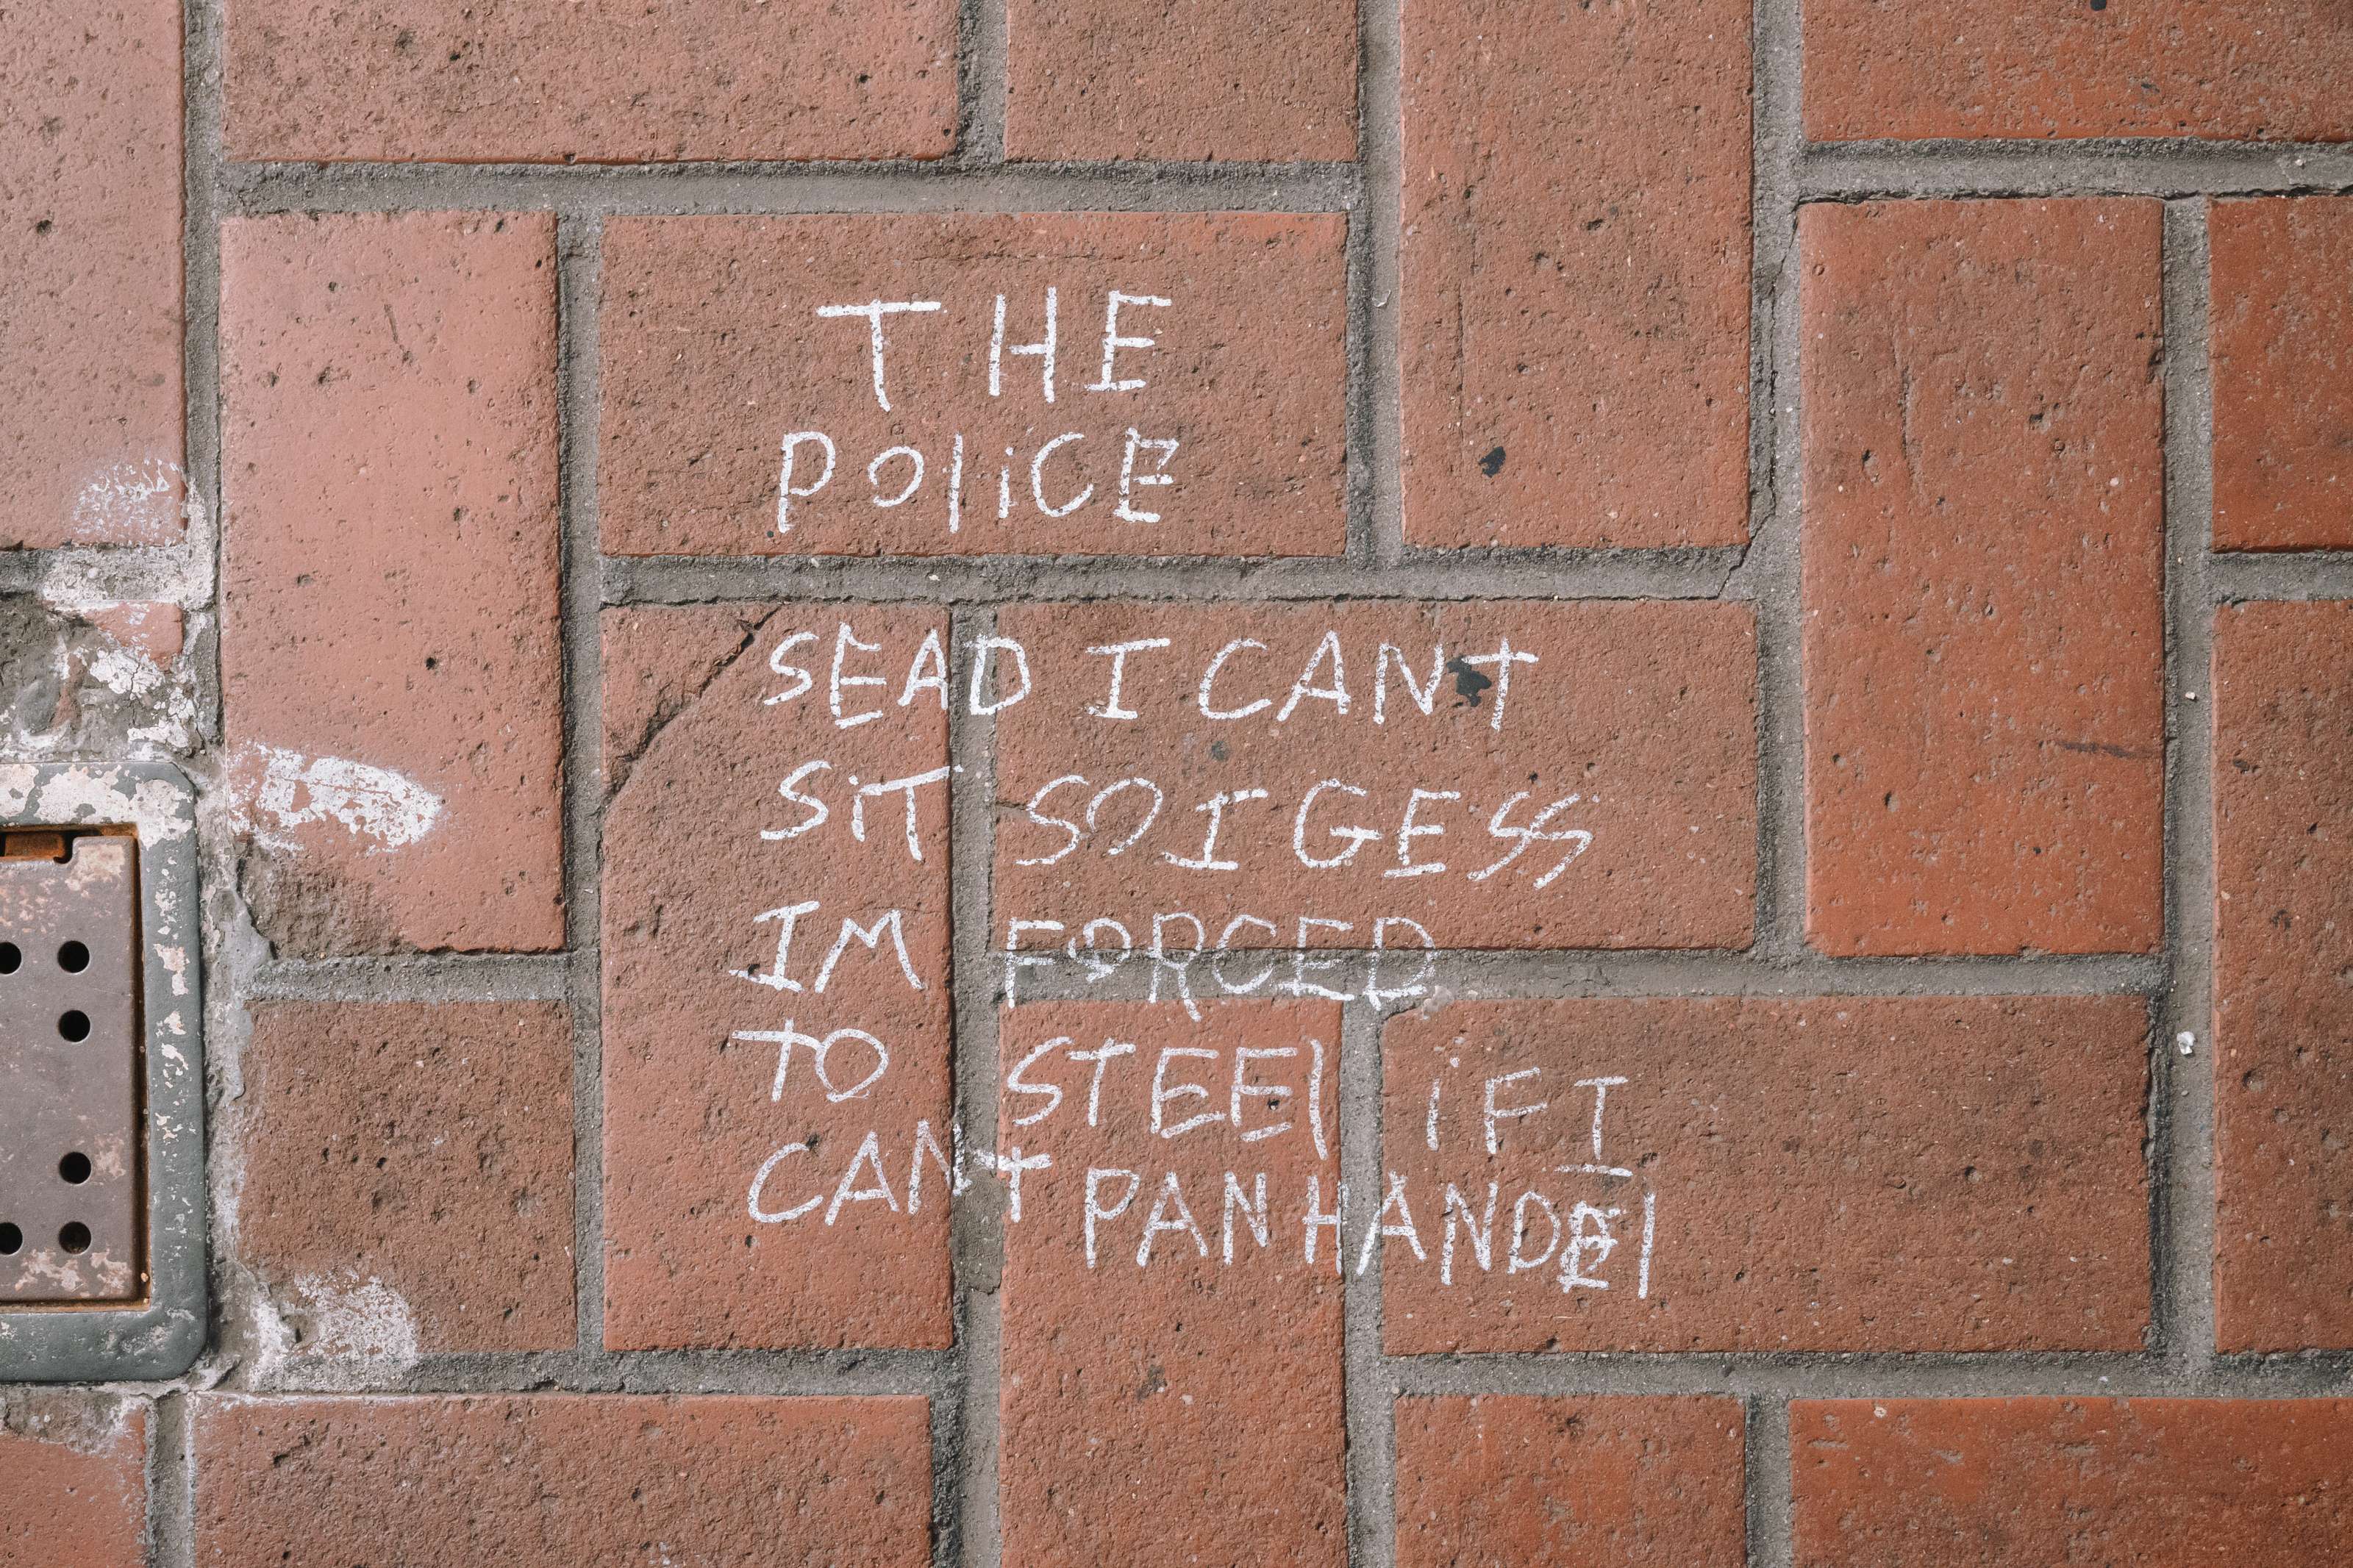 THE
POliCE
SEAD I CANT
SiT SO I GESS
IM FORCED
TO STEEl iF I
CANT PANHANDEl